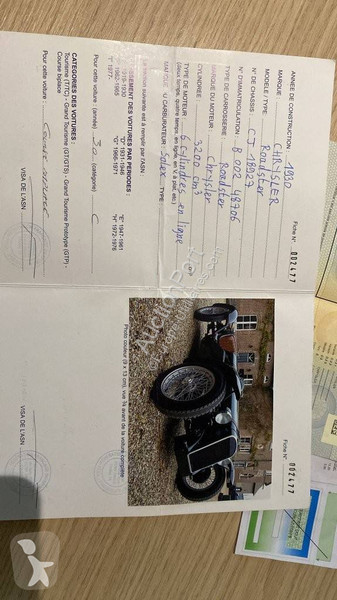 ANNÉE DE CONSTRUCTION : 1930
Fiche N° 002477
MARQUE : CHRYSLER
MODELE / TYPE : Roadster
N° DE CHASSIS : CJ 18927
N° D'IMMATRICULATION : B 002 48706
TYPE DE CARROSSERIE : Roadster
MARQUE DU MOTEUR : Chrysler
CYLINDREE : 3200 cm3
TYPE DE MOTEUR : 6 cylindres en ligne
(deux temps, quatre temps, en ligne, en V à plat, etc.)
CARBURATEUR : Solex TYPE :
suivante est à remplir par l'ASN :
CLASSEMENT DES VOITURES PAR PERIODES :
1919-1930 "D" 1931-1946 "E" 1947-1961
1962-1965 "G" 1966-1971 "H" 1972-1976
"I" 1977-
Pour cette voiture : (année) 30 (catégorie) C
CATÉGORIES DES VOITURES :
Tourisme (T/TC) - Grand Tourisme (GT/GTS) - Grand Tourisme Prototype (GTP)
Course biplace
Pour cette voiture :
VISA DE L'ASN
Fiche N° 002477
Photo couleur (9 x 13 cm), vue ¾ avant de la voiture complète
VISA DE L'ASN
VISA DE L'ASN